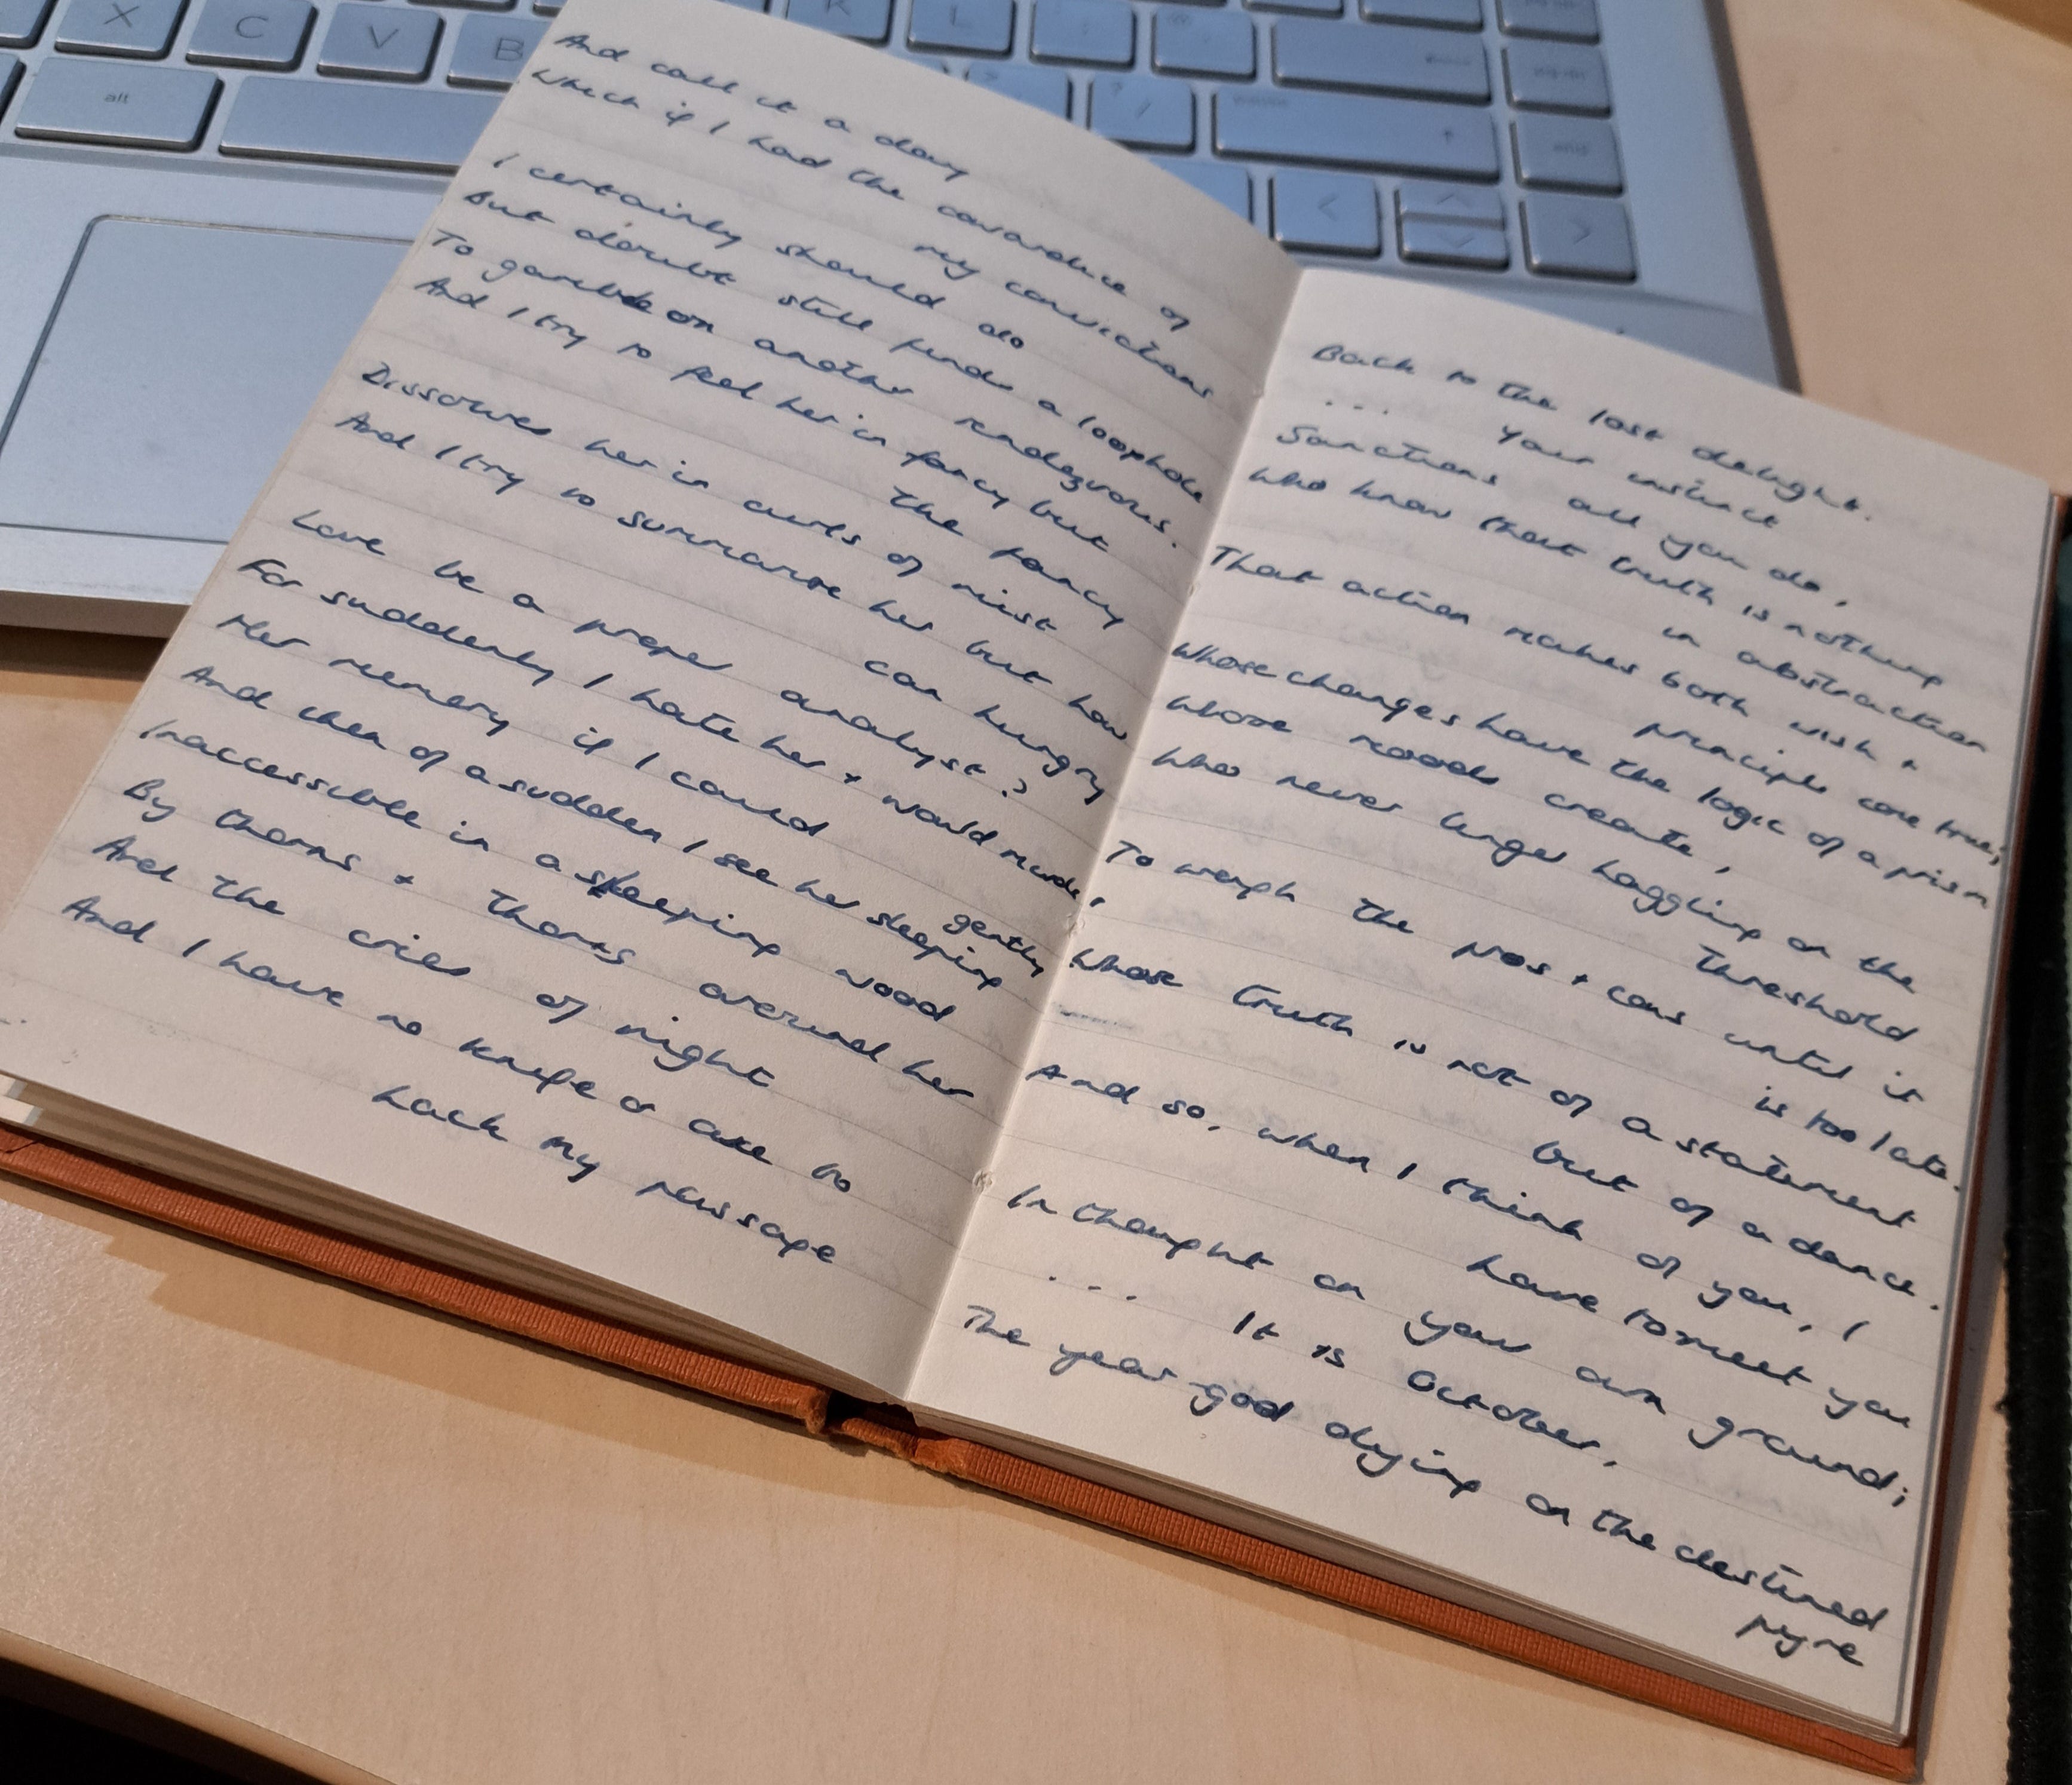 X
C
V
B
K
L
alt
end
And call it a day
Which if I had the cowardice of
my convictions
I certainly should do
But doubt still finds a loophole
To gamble on another rendezvous.
And I try to feel her in fancy but
the fancy
Dissolves her in curls of mist
And I try to summarise her but how
can hungry
Love be a proper analyst?
For suddenly I hate her + would murder
Her memory if I could
And then of a sudden I see her sleeping
gently
Inaccessible in a sleeping wood
By thorns + thorns around her
And the cries of night
And I have no knife or axe to
hack my passage
Back to the lost delight.
... Your instinct
Sanctions all you do,
Who know that truth is nothing
in abstraction
That action makes both wish +
principle come true;
Whose changes have the logic of a prism
Whose moods create,
Who never linger haggling on the
threshold
To weigh the pros + cons until it
is too late.
Whose truth is not of a statement
but of a dance.
And so, when I think of you, I
have to meet you
In thought on your own ground;
... It is October,
The year-god dying on the destined
pyre